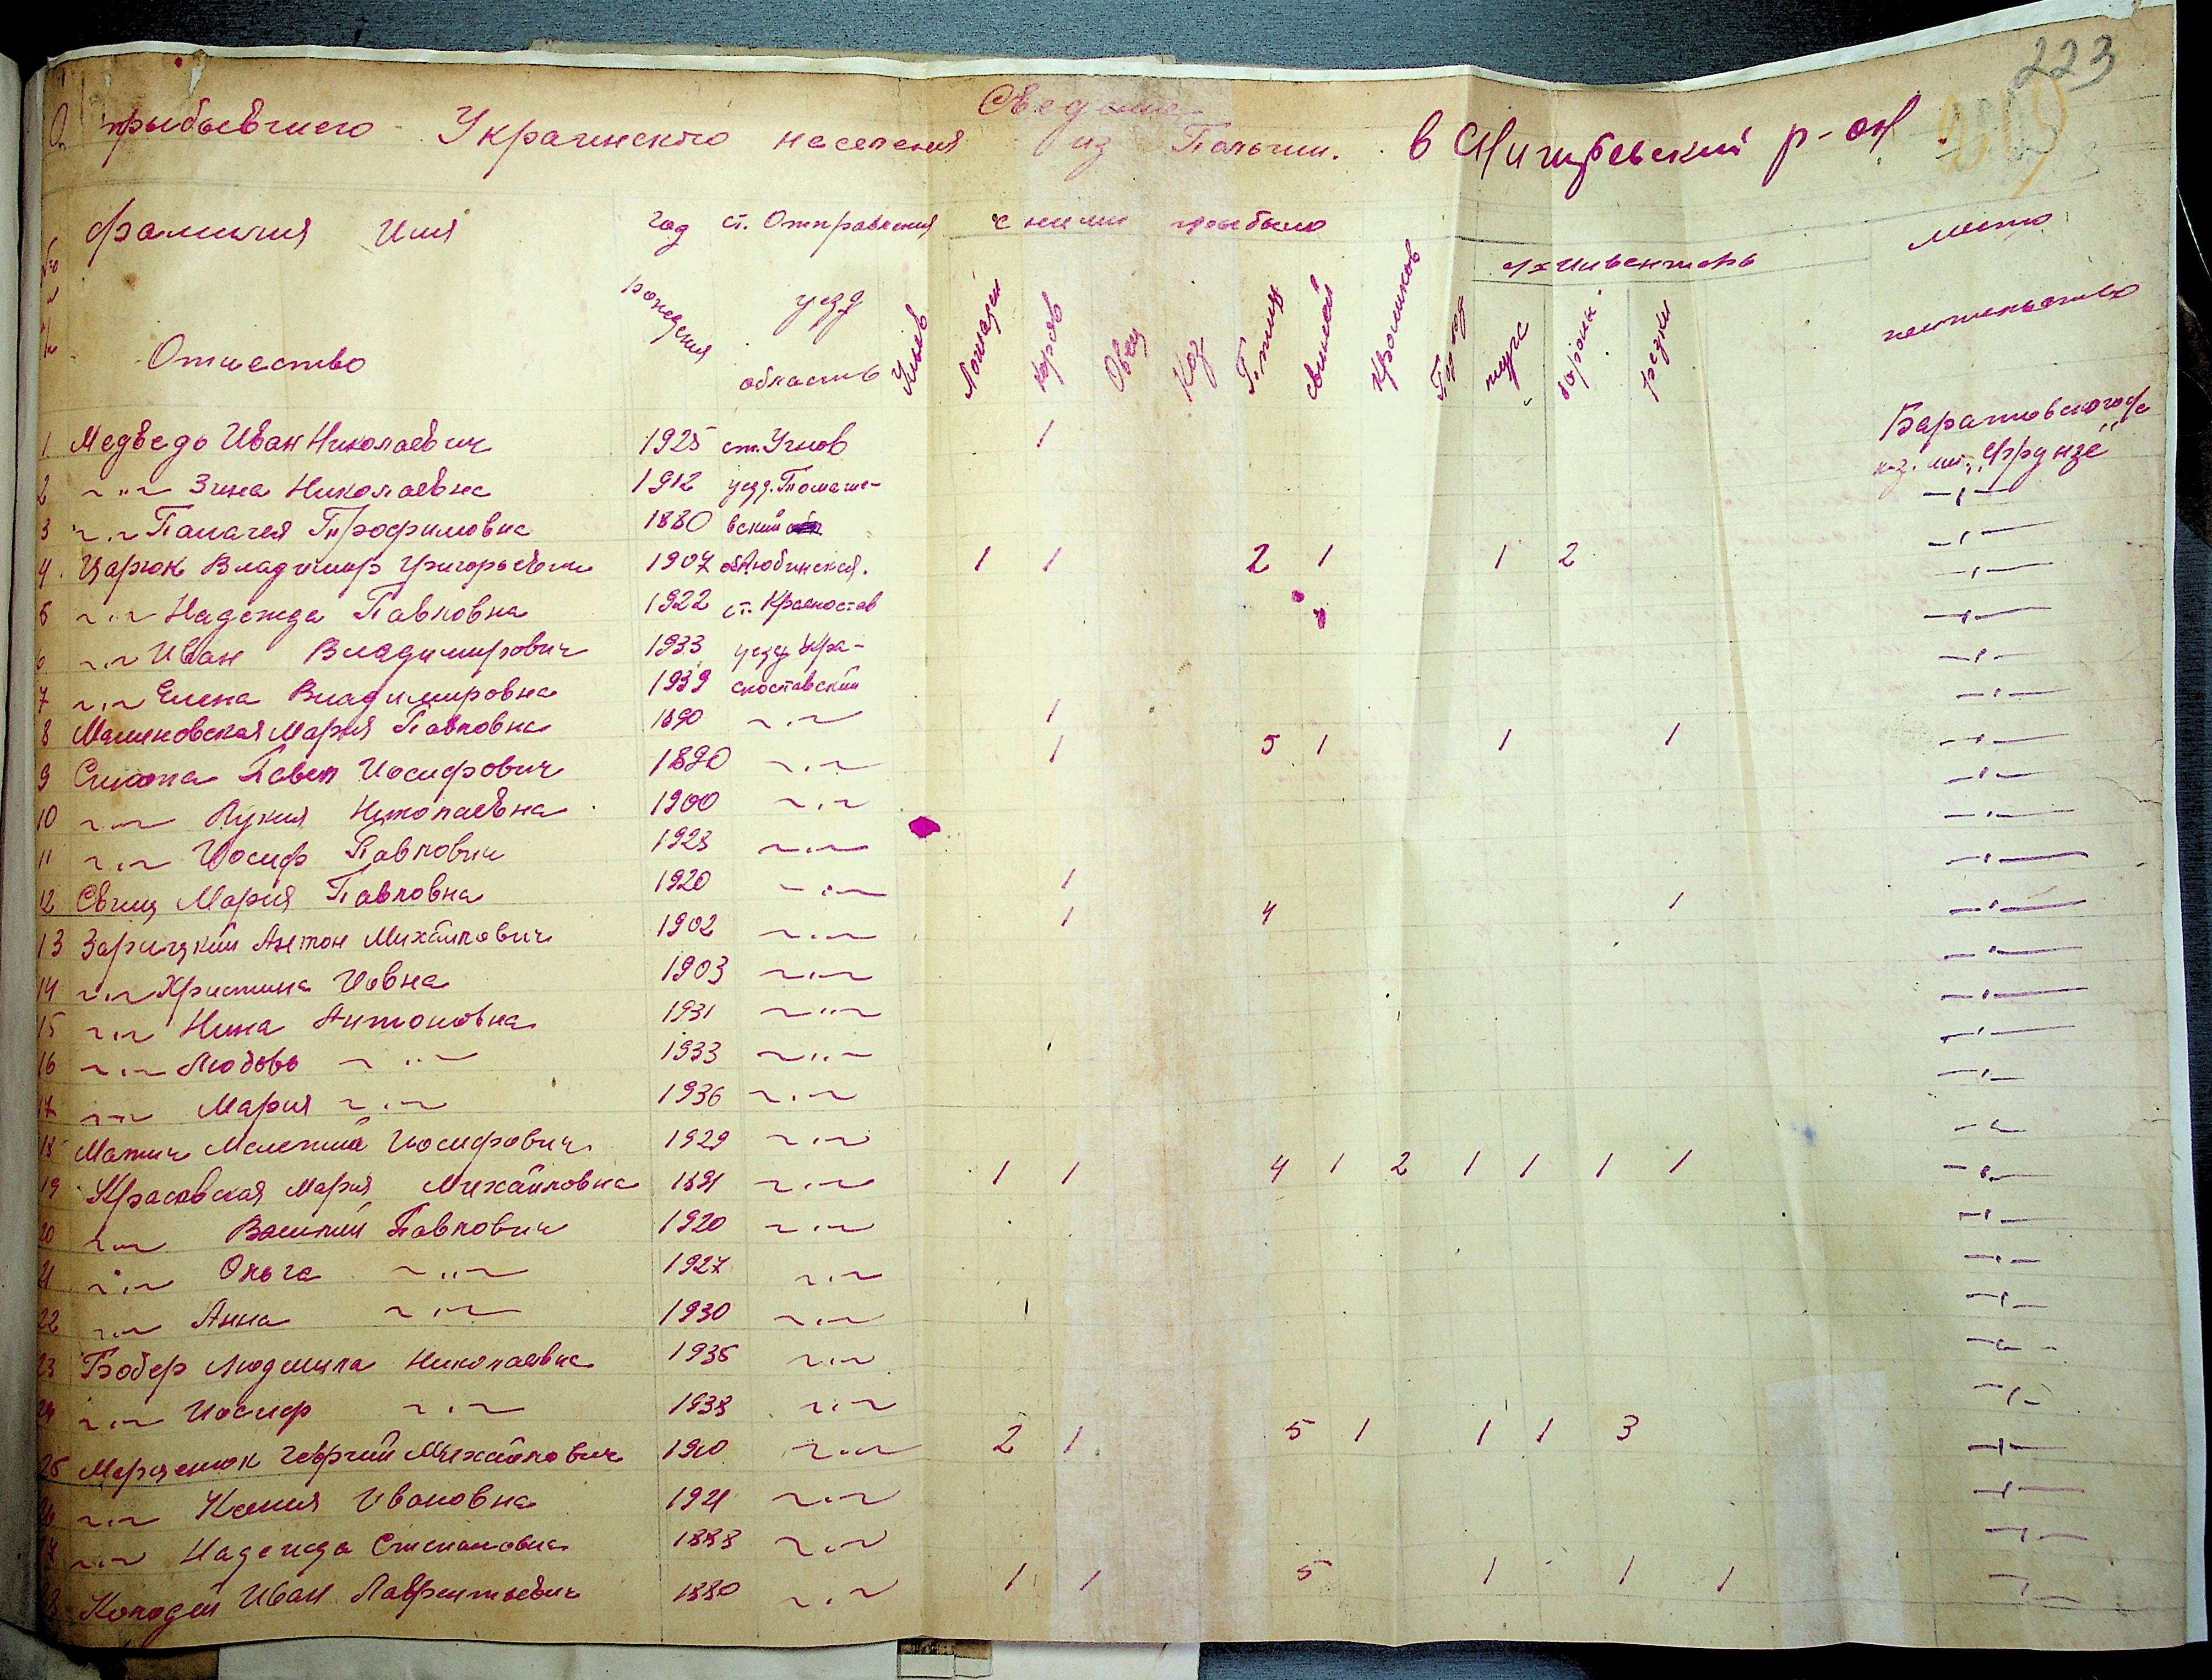 223
Сведение
О прибывшего Украинского населения из Польши. в Снигиревский р-он
Фамилия Имя Отчество
год рождения
ст. Отправления уезд область
с ними прибыло
Ульев
Лошадей
коров
Овец
Коз
Птицы
свиней
Кроликов
с/х Инвентарь
плуг
борона
резки
место жительства
1 Медведь Иван Николаевич 1925 ст. Угнов 1 Баратовского с/с
к-з. им. „Фрунзе"
2 ~"~ Зина Николаевна 1912 уезд. Томаше- —"—
3 ~"~ Палагея Трофимовна 1880 вский —"—
4. Царюк Владимир Григорьевич 1907 об Люблинская. 1 1 2 1 1 2 —"—
5 ~"~ Надежда Павловна 1922 ст. Красностав —"—
6 ~"~ Иван Владимирович 1933 уезд Кра- —"—
7 ~"~ Елена Владимировна 1939 сноставский —"—
8 Малиновская Мария Павловна 1890 ~"~ 1 —"—
9 Павел Иосифович 1890 ~"~ 1 5 1 1 1 —"—
10 ~"~ Лукия Николаевна 1900 ~"~ —"—
11 ~"~ Иосиф Павлович 1928 ~"~ —"—
12 Свищ Мария Павловна 1920 ~"~ 1 —"—
13 Зарицкий Антон Михайлович 1902 ~"~ 1 4 1 —"—
14 ~"~ Христина Иовна 1903 ~"~ —"—
15 ~"~ Нина Антоновна 1931 ~"~ —"—
16 ~"~ Любовь ~"~ 1933 ~"~ —"—
17 ~"~ Мария ~"~ 1936 ~"~ —"—
18 Матич Мелетий Иосифович 1929 ~"~ —"—
19 Красовская Мария Михайловна 1891 ~"~ 1 1 4 1 2 1 1 1 1 —"—
20 ~"~ Василий Павлович 1920 ~"~ —"—
21 ~"~ Ольга ~"~ 1927 ~"~ —"—
22 ~"~ Анна ~"~ 1930 ~"~ —"—
23 Бобер Людмила Николаевна 1935 ~"~ —"—
24 ~"~ Иосиф ~"~ 1938 ~"~ —"—
25 Марценюк Георгий Михайлович 1910 ~"~ 2 1 5 1 1 1 3 —"—
26 ~"~ Ксения Ивановна 1921 ~"~ —"—
~"~ Надежда Степановна 1888 ~"~ —"—
Колодей Иван Лаврентьевич 1880 ~"~ 1 1 5 1 1 1 —"—